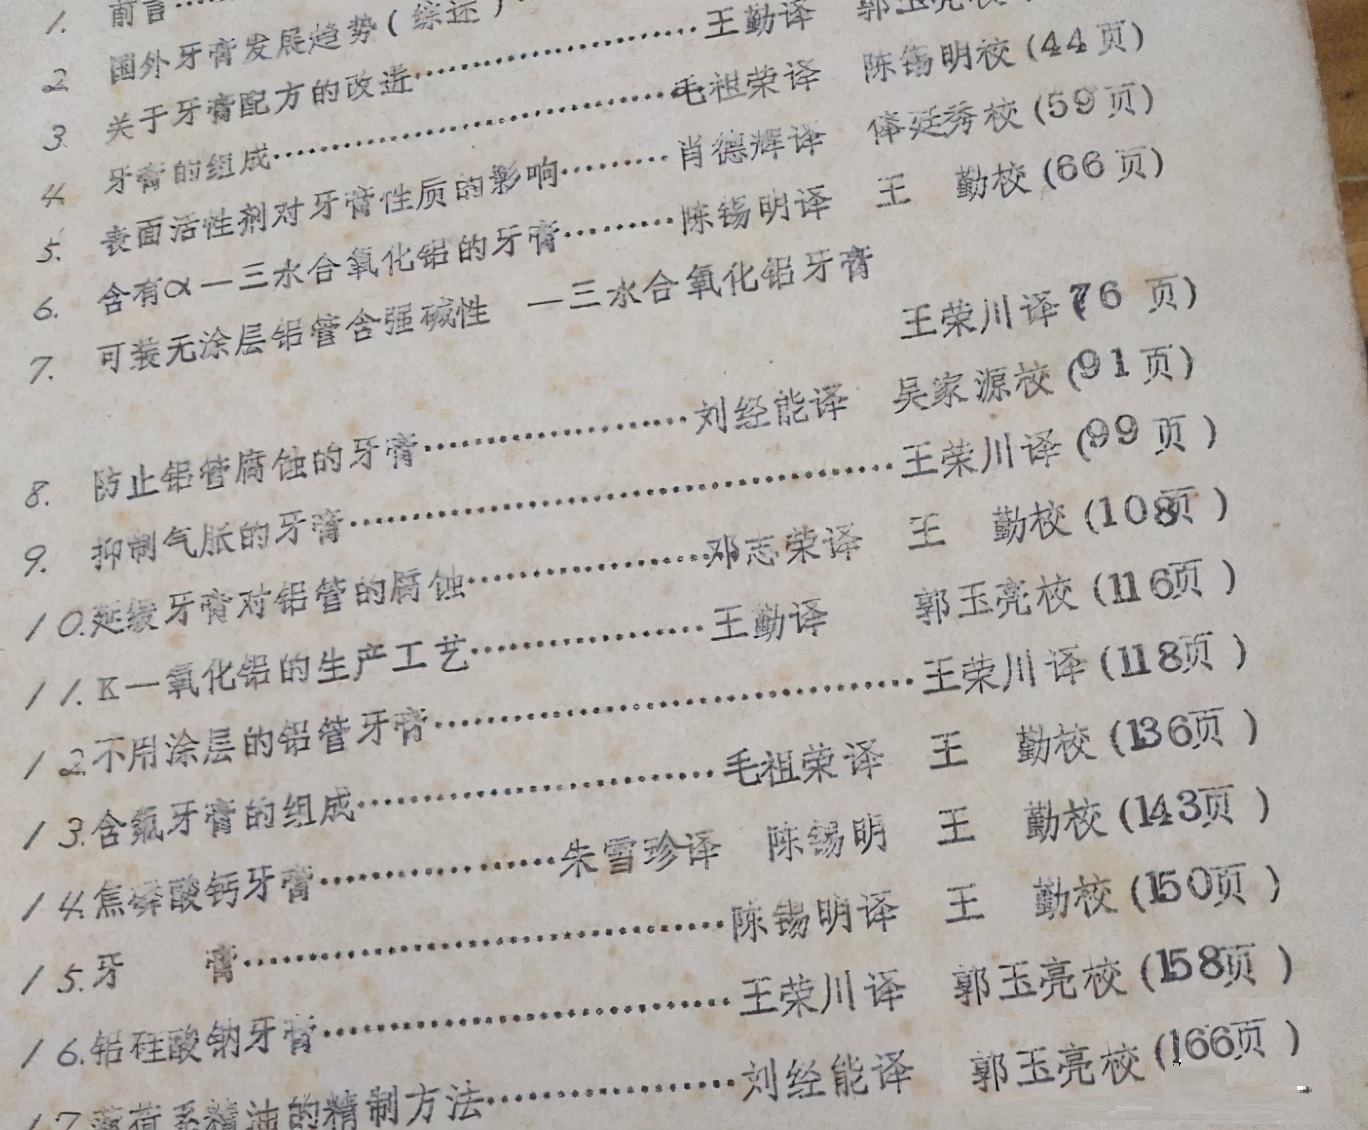 1. 前言……
2. 国外牙膏发展趋势(综述)……
3. 关于牙膏配方的改进……王勤译 郭玉亮校
4. 牙膏的组成……毛祖荣译 陈锡明校(44页)
5. 表面活性剂对牙膏性质的影响……肖德辉译 廷秀校(59页)
6. 含有α—三水合氧化铝的牙膏……陈锡明译 王 勤校(66页)
7. 可装无涂层铝管含强碱性 —三水合氧化铝牙膏
王荣川译76 页)
8. 防止铝管腐蚀的牙膏……刘经能译 吴家源校(91页)
9. 抑制气胀的牙膏……王荣川译(99页)
10.延缓牙膏对铝管的腐蚀……邓志荣译 王 勤校(108页)
11.K—氧化铝的生产工艺……王勤译 郭玉亮校(116页)
12.不用涂层的铝管牙膏……王荣川译(118页)
13.含氟牙膏的组成……毛祖荣译 王 勤校(136页)
14.焦磷酸钙牙膏……朱雪珍译 陈锡明 王 勤校(143页)
15.牙 膏……陈锡明译 王 勤校(150页)
16.铝硅酸钠牙膏……王荣川译 郭玉亮校(158页)
17.薄荷系精油的精制方法……刘经能译 郭玉亮校(166页)